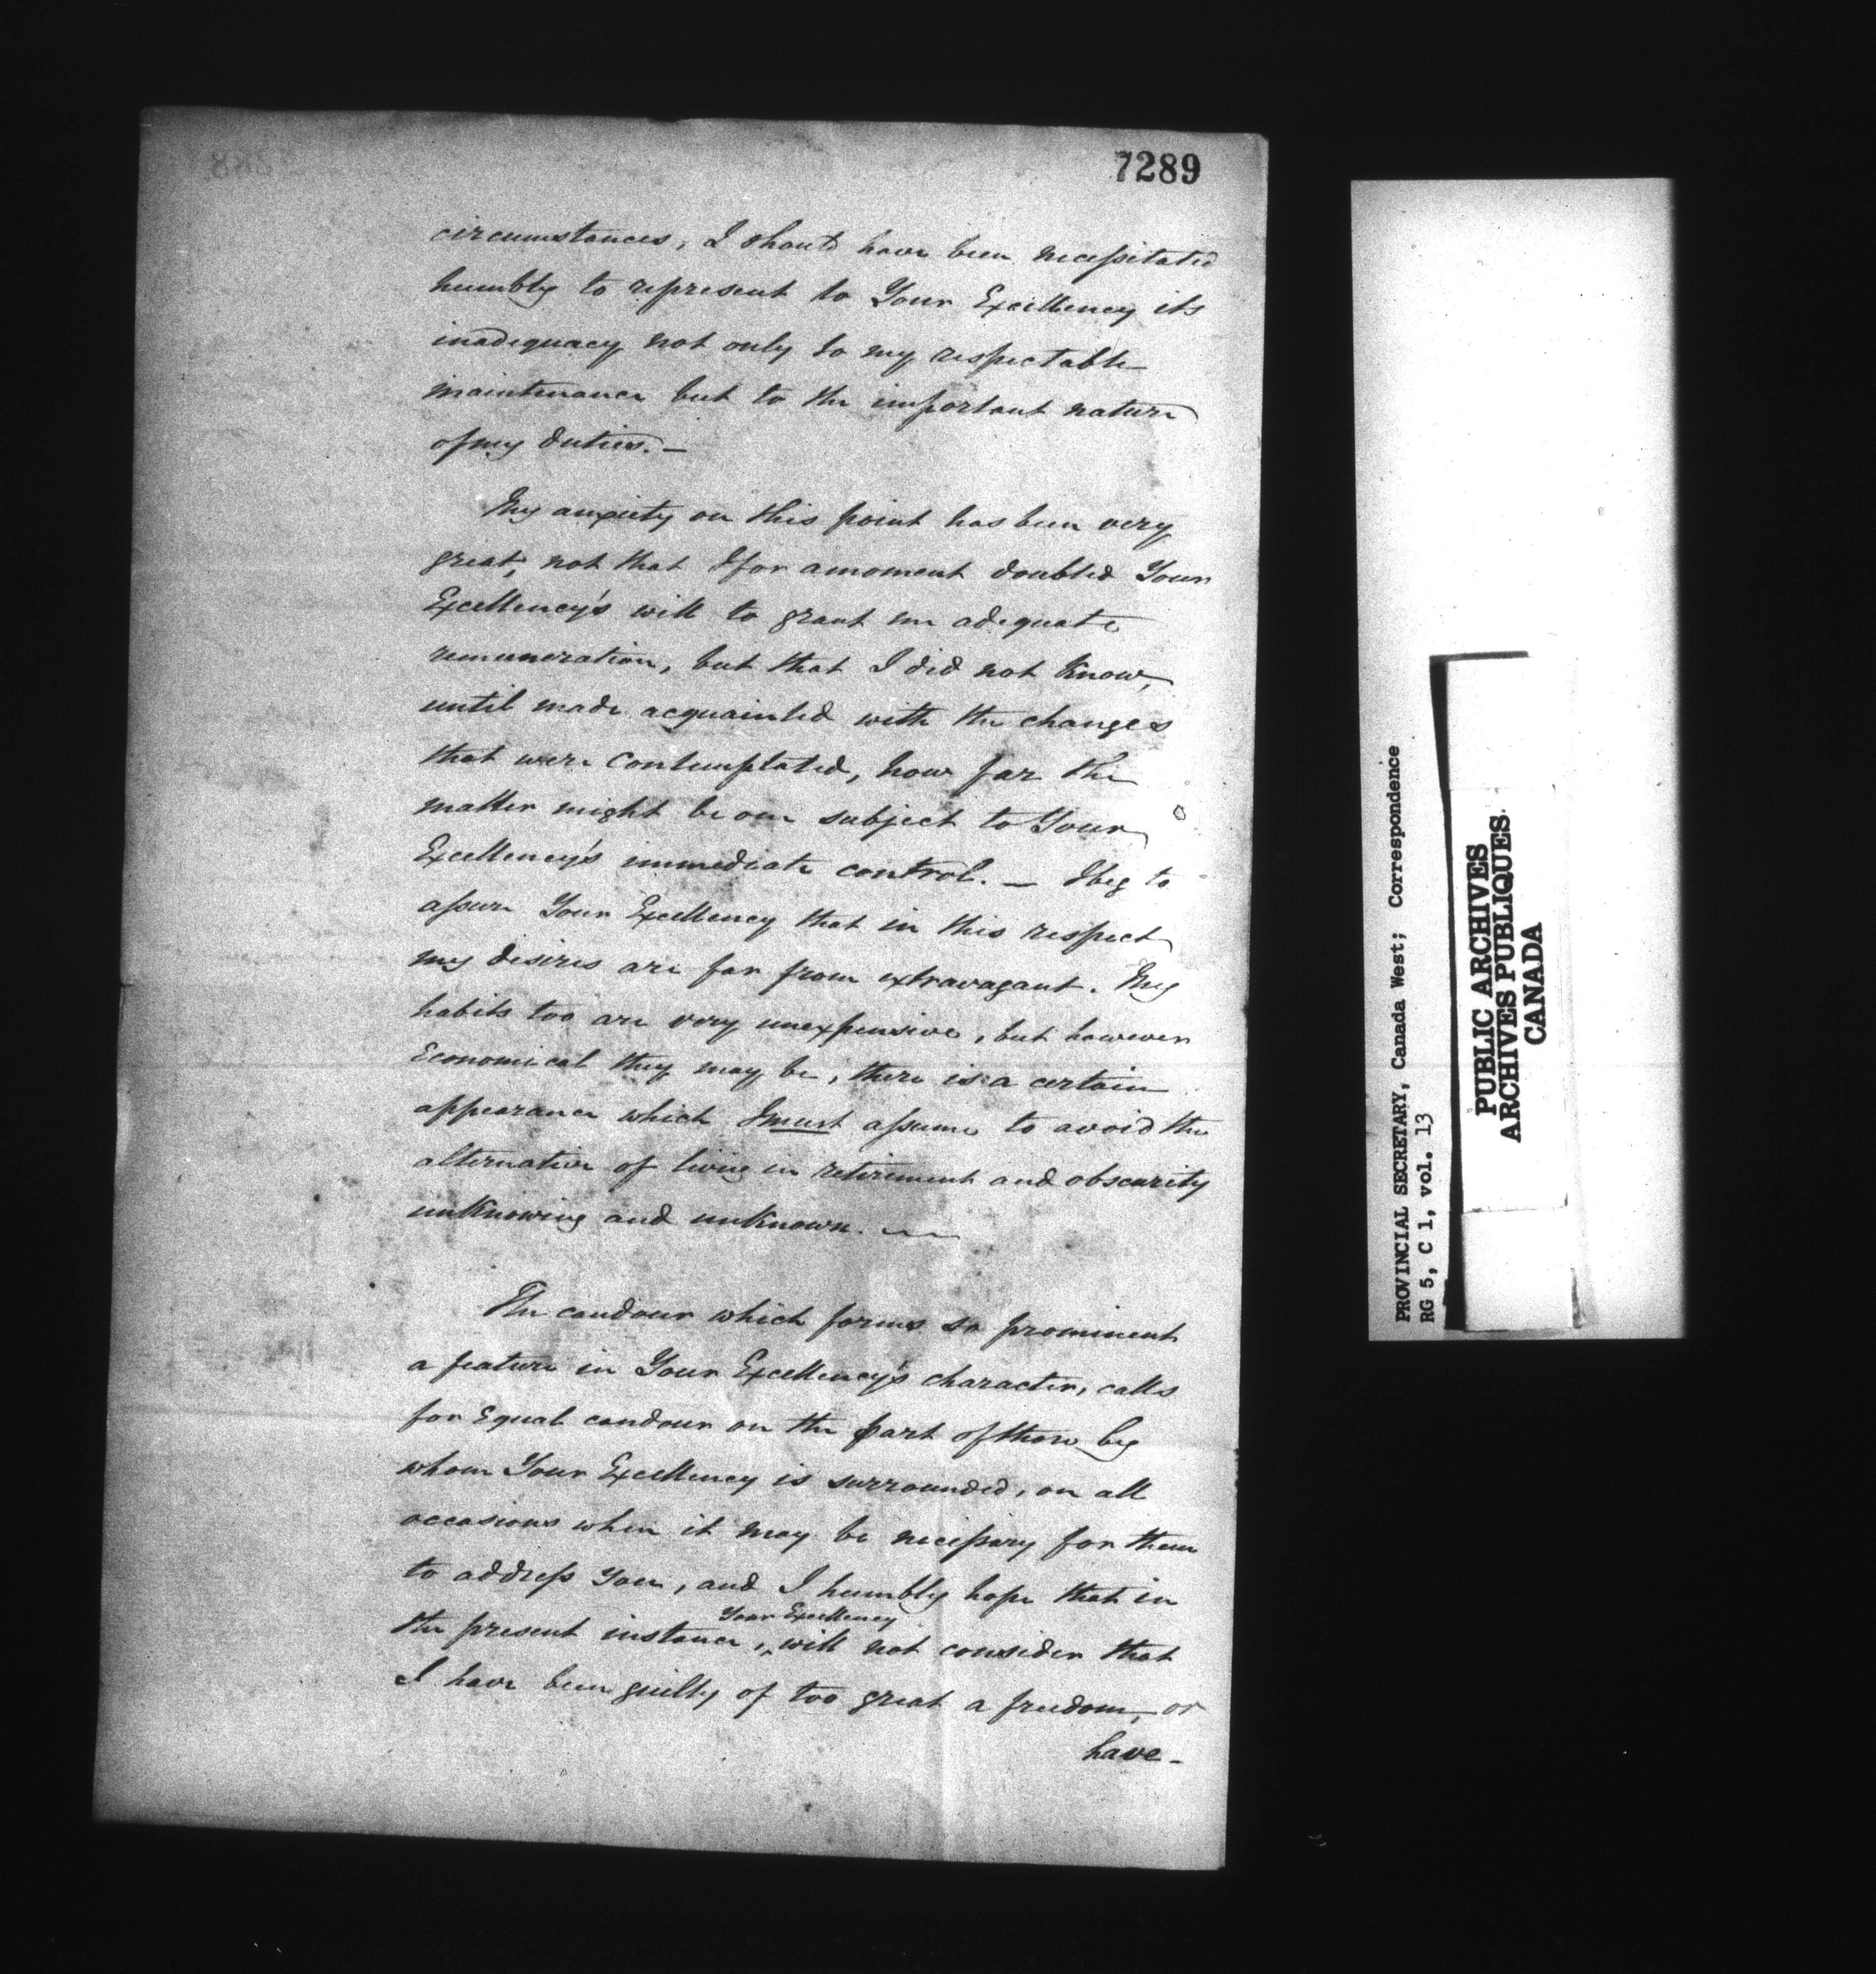 7289
circumstances, I should have been necessitated
humbly to represent to Your Excellency its
inadequacy not only to my respectable
maintenance but to the important nature
of my duties. —
My anxiety on this point has been very
great, not that I for a moment doubted Your
Excellency's will to grant me adequate
remuneration, but that I did not Know,
until made acquainted with the changes
that were contemplated, how far the
matter might be one subject to Your
Excellency's immediate control. — I beg to
assure Your Excellency that in this respect
my desires are far from extravagant. My
habits too are very unexpensive, but however
Economical they may be, there is a certain
appearance which I must assume to avoid the
alternative of living in retirement and obscurity
unKnowing and unKnown. —
The candour which forms so prominent
a feature in Your Excellency's character, calls
for Equal candour on the part of those by
whom Your Excellency is surrounded, on all
occasions when it may be necessary for them
to address You, and I humbly hope that in
the present instance, Your Excellency will not consider that
I have been guilty of too great a freedom, or
have —
PROVINCIAL SECRETARY, Canada West; Correspondence
RG 5, C 1, vol. 13
PUBLIC ARCHIVES
ARCHIVES PUBLIQUES
CANADA